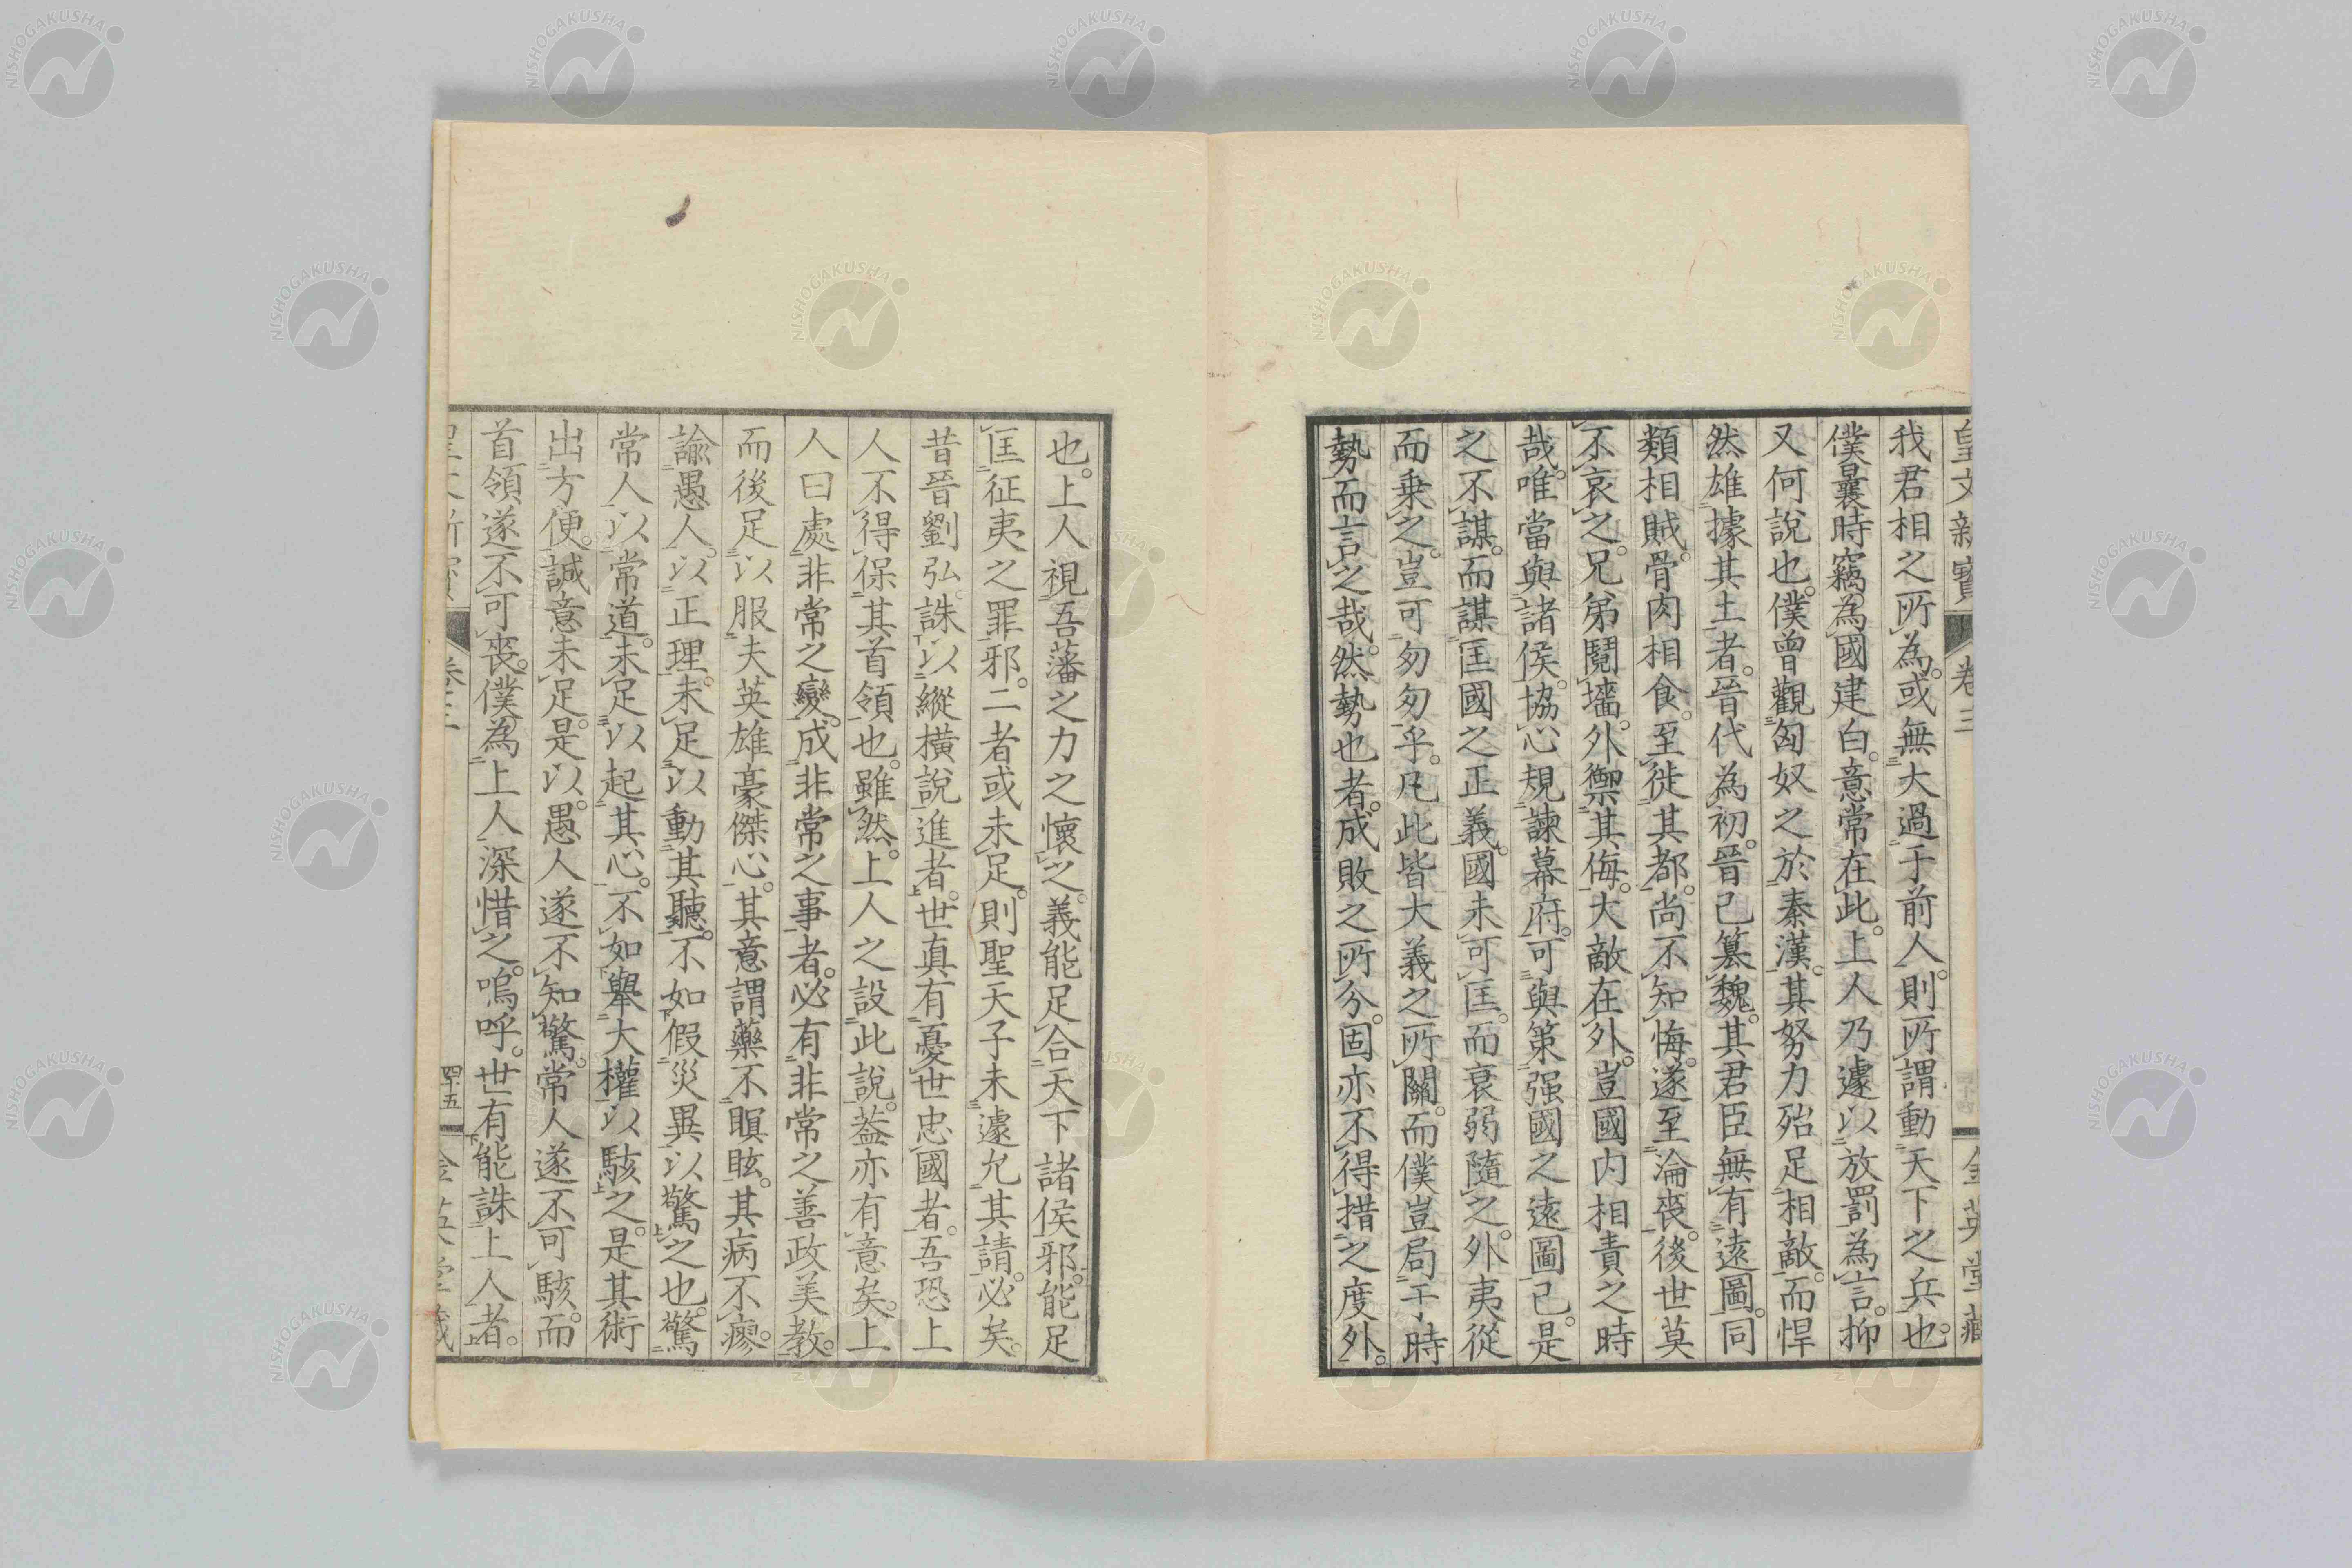 我君相之所為。或無大過于前人。則所謂動天下之兵也。
僕曩時竊為國建白。意常在此。上人乃遽以放罰為言。抑
又何說也。僕曾觀匈奴之於秦漢。其努力殆足相敵。而悍
然雄據其土者。晉代為初。晉已簒魏。其君臣無有遠圖。同
類相賊。骨肉相食。至徙其都。尚不知悔。遂至淪喪。後世莫
不哀之。兄弟鬩墻。外禦其侮。大敵在外。豈國内相責之時
哉。唯當與諸侯。協心規諫幕府。可與策强國之遠圖已。是
之不謀。而謀匡國之正義。國未可匡。而衰弱隨之。外夷從
而乗之。豈可匆匆乎。凡此皆大義之所關。而僕豈局于時
勢而言之哉。然勢也者。成敗之所分。固亦不得措之度外。
卷三
也。上人視吾藩之力之懷之。義能足合天下諸侯邪。能足
匡征夷之罪邪。二者或未足。則聖天子未遽允其請。必矣。
昔晉劉弘誅以縱横說進者。世真有憂世忠國者。吾恐上
人不得保其首領也。雖然。上人之設此說。葢亦有意矣。上
人曰處非常之變。成非常之事者。必有非常之善政美教。
而後足以服夫英雄豪傑心。其意謂藥不瞑眩。其病不瘳。
諭愚人。以正理。未足以動其聽。不如假災異以驚之也。驚
常人以常道。未足以起其心。不如舉大權以駭之。是其術
出方便。誠意未足。是以。愚人遂不知驚。常人遂不可駭。而
首領遂不可喪。僕為上人深惜之。嗚呼。世有能誅上人者。
四十五